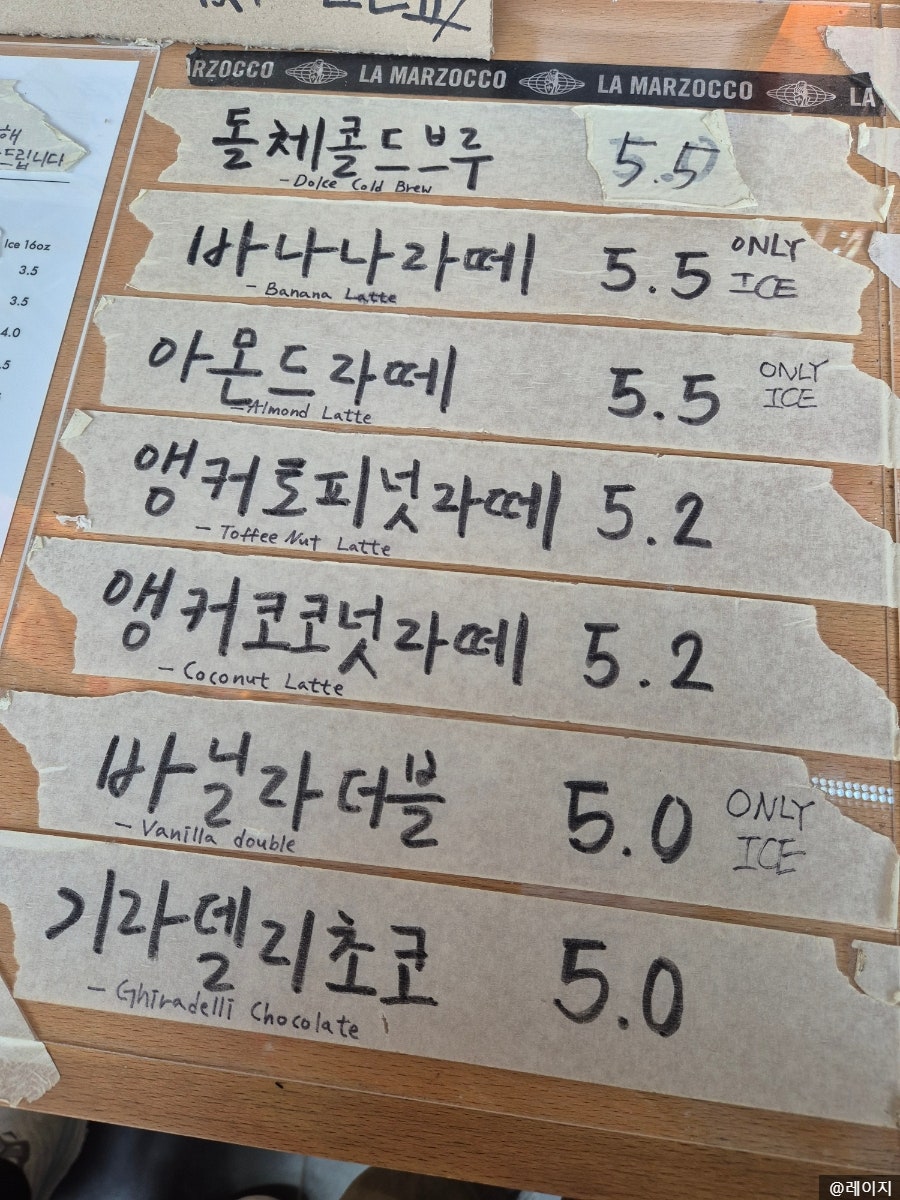 RZOCCO LA MARZOCCO LA MARZOCCO LA
해
드립니다
Ice 16oz
3.5
3.5
4.0
.5
돌체콜드브루 5.5
-Dolce Cold Brew
바나나라떼 5.5 ONLY ICE
- Banana Latte
아몬드라떼 5.5 ONLY ICE
-Almond Latte
앵커토피넛라떼 5.2
- Toffee Nut Latte
앵커코코넛라떼 5.2
- Coconut Latte
바닐라더블 5.0 ONLY ICE
- Vanilla double
기라델리초코 5.0
- Ghiradelli Chocolate
@레이지